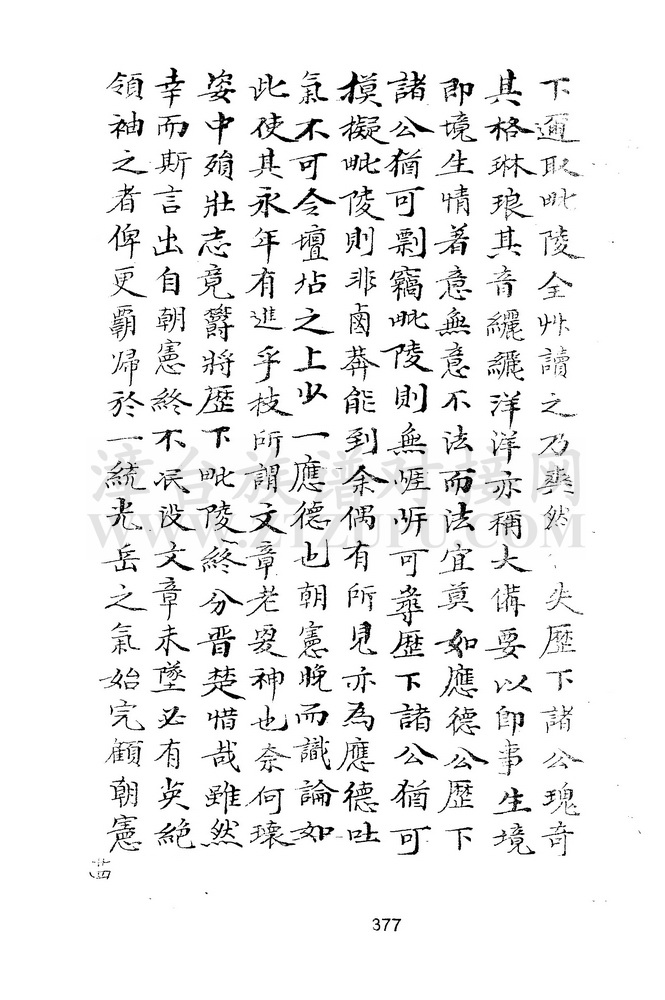 下邇取毗陵全艸讀之乃爽然失歷下諸公瑰奇
其格琳琅其音纚纚洋洋亦稱大備要以即事生境
即境生情著意無意不法而法宜莫如應德公歷下
諸公猶可剽竊毗陵則無涯涘可尋歷下諸公猶可
摸擬毗陵則非鹵莽能到余偶有所見亦為應德吐
氣不可令壇坫之上少一應德也朝憲晚而識論如
此使其永年有進乎枝所謂文章老更神也奈何瓌
姿中殞壯志竟欝將歷下毗陵終分晋楚惜哉雖然
幸而斯言出自朝憲終不泯没文章未墜必有英絕
領袖之者俾更霸歸於一統光岳之氣始完顧朝憲
廿四
377
漳台族谱对接网
WWW.ZTZUPU.COM